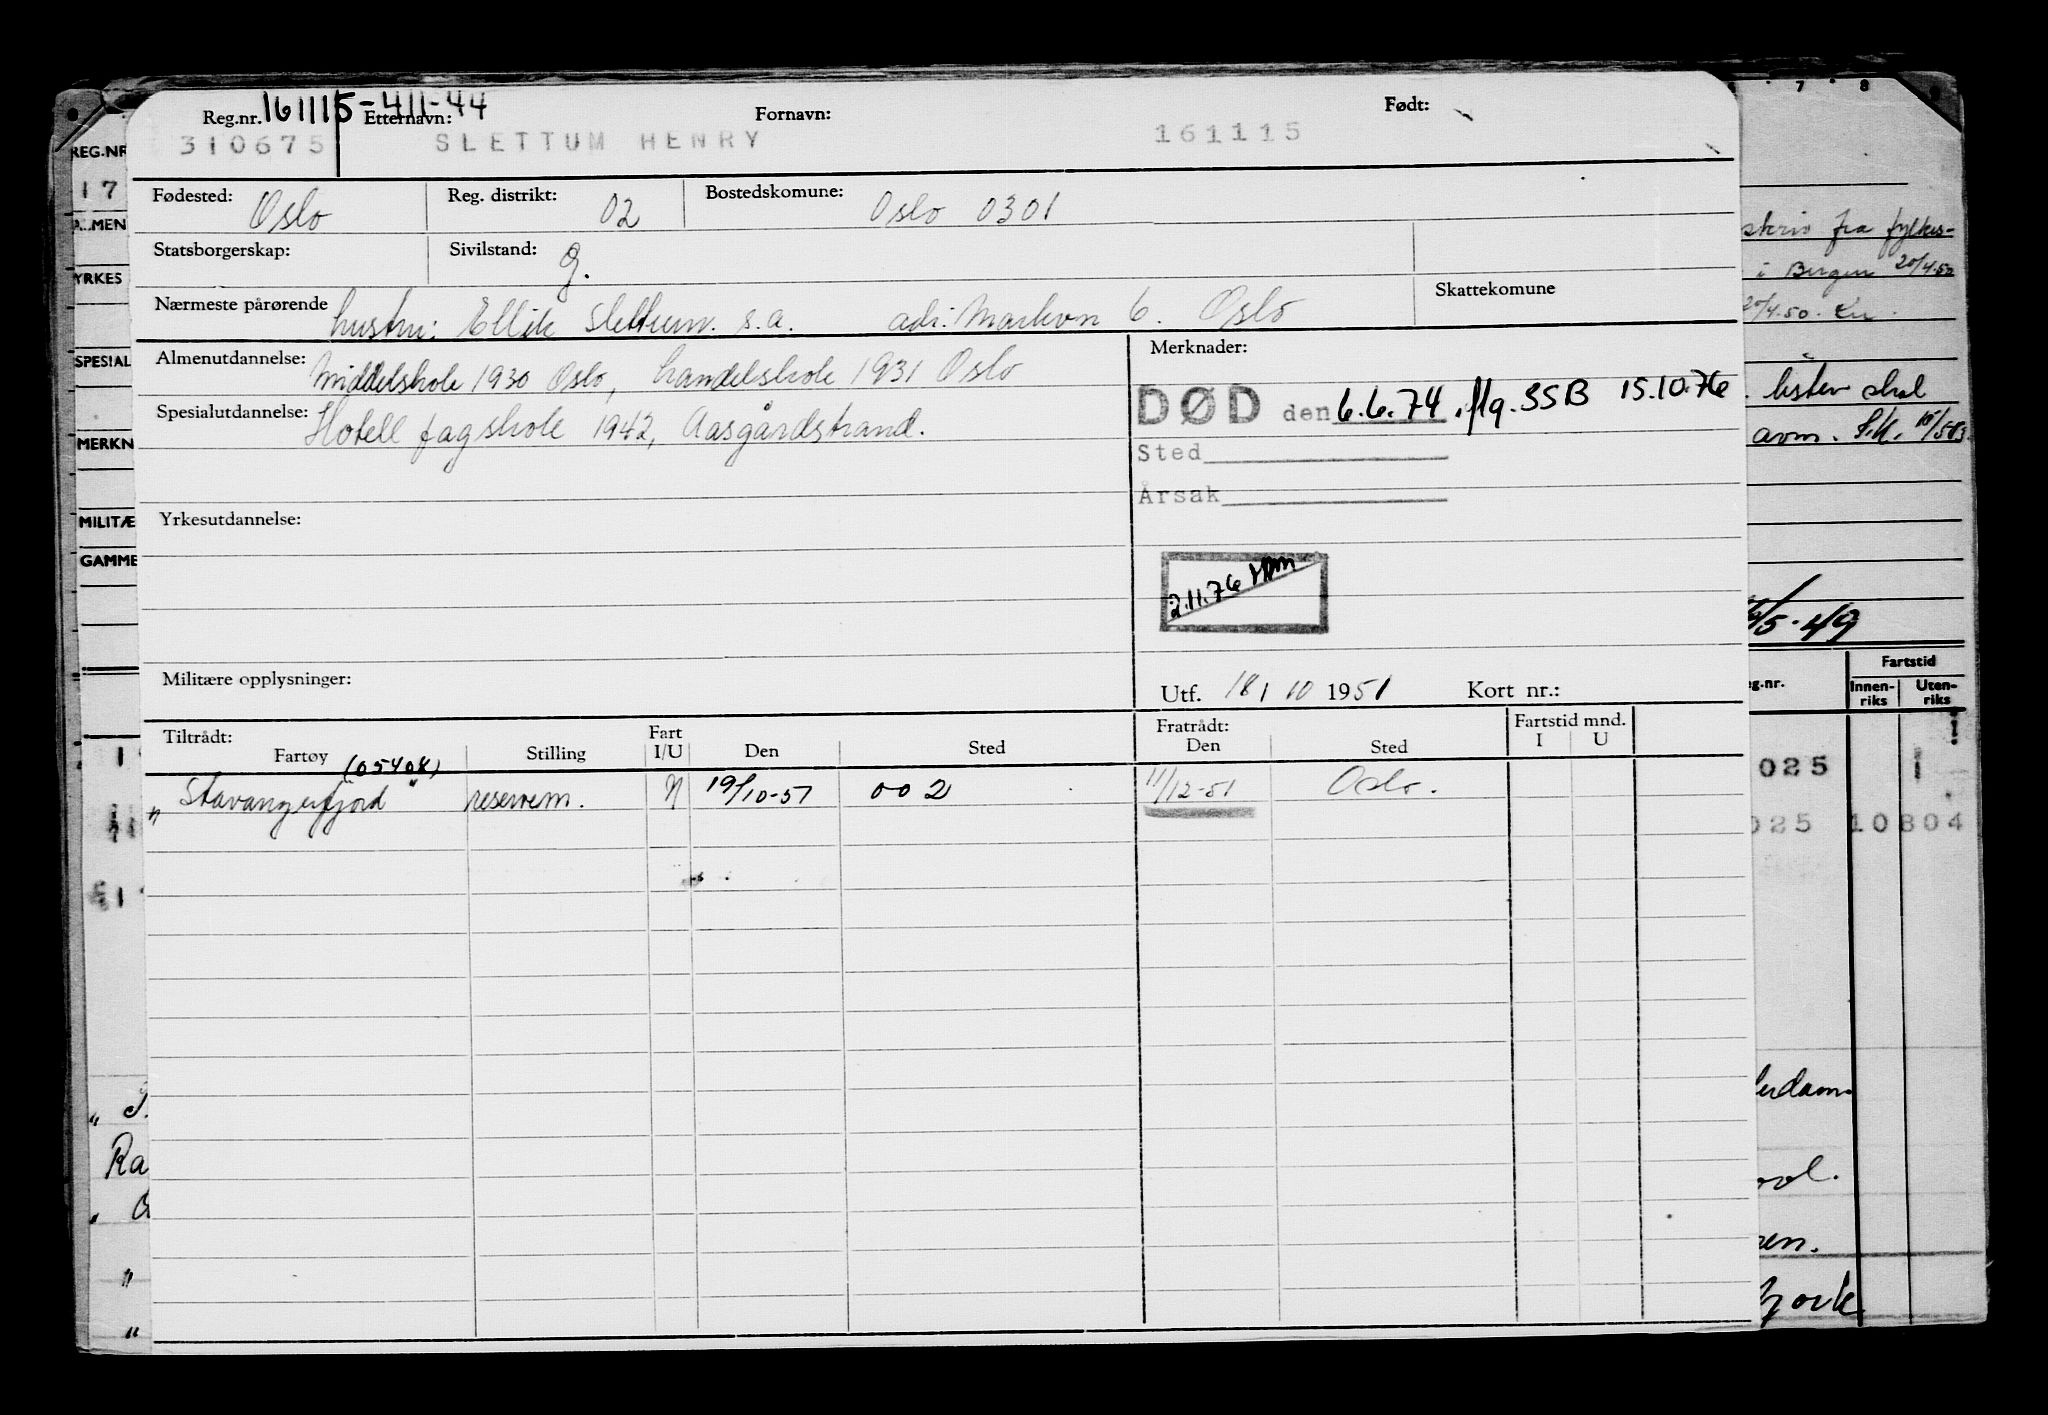 Reg.nr. 161115-411-44 Etternavn: Fornavn: Født:
310675 SLETTUM HENRY 161115
Fødested: Oslo Reg. distrikt: 02 Bostedskomune: Oslo 0301
Statsborgerskap: Sivilstand: g.
Nærmeste pårørende hustru: Ellik Slettum. s.a. adr: Markvn 6. Oslo Skattekomune
Almenutdannelse: Middelskole 1930 Oslo, handelskole 1931 Oslo Merknader:
Spesialutdannelse: Hotell fagskole 1942, Aasgårdstrand. DØD den 6.6.74. flg. SSB 15.10.76
Sted
Årsak
Yrkesutdannelse:
2.11.76
Militære opplysninger: Utf. 18/10 1951 Kort nr.:
Tiltrådt: Fart Fratrådt: Fartstid mnd.
Fartøy Stilling I/U Den Sted Den Sted I U
(05408)
" Stavangerfjord " reservem. 19/10-51 002 11/12-51 Oslo.
REG.NR
17
MEN
YRKES
SPESIAL
MERKN
MILITÆ
GAMME
Ra
7 8
skriv fra fylkes-
i Bergen 20/4.50
20/4.50.
. listen skal
avm.
/5-49
g.nr. Fartstid
Innen-riks Uten-riks
025 1
025 10804
erdam.
ool.
en.
York